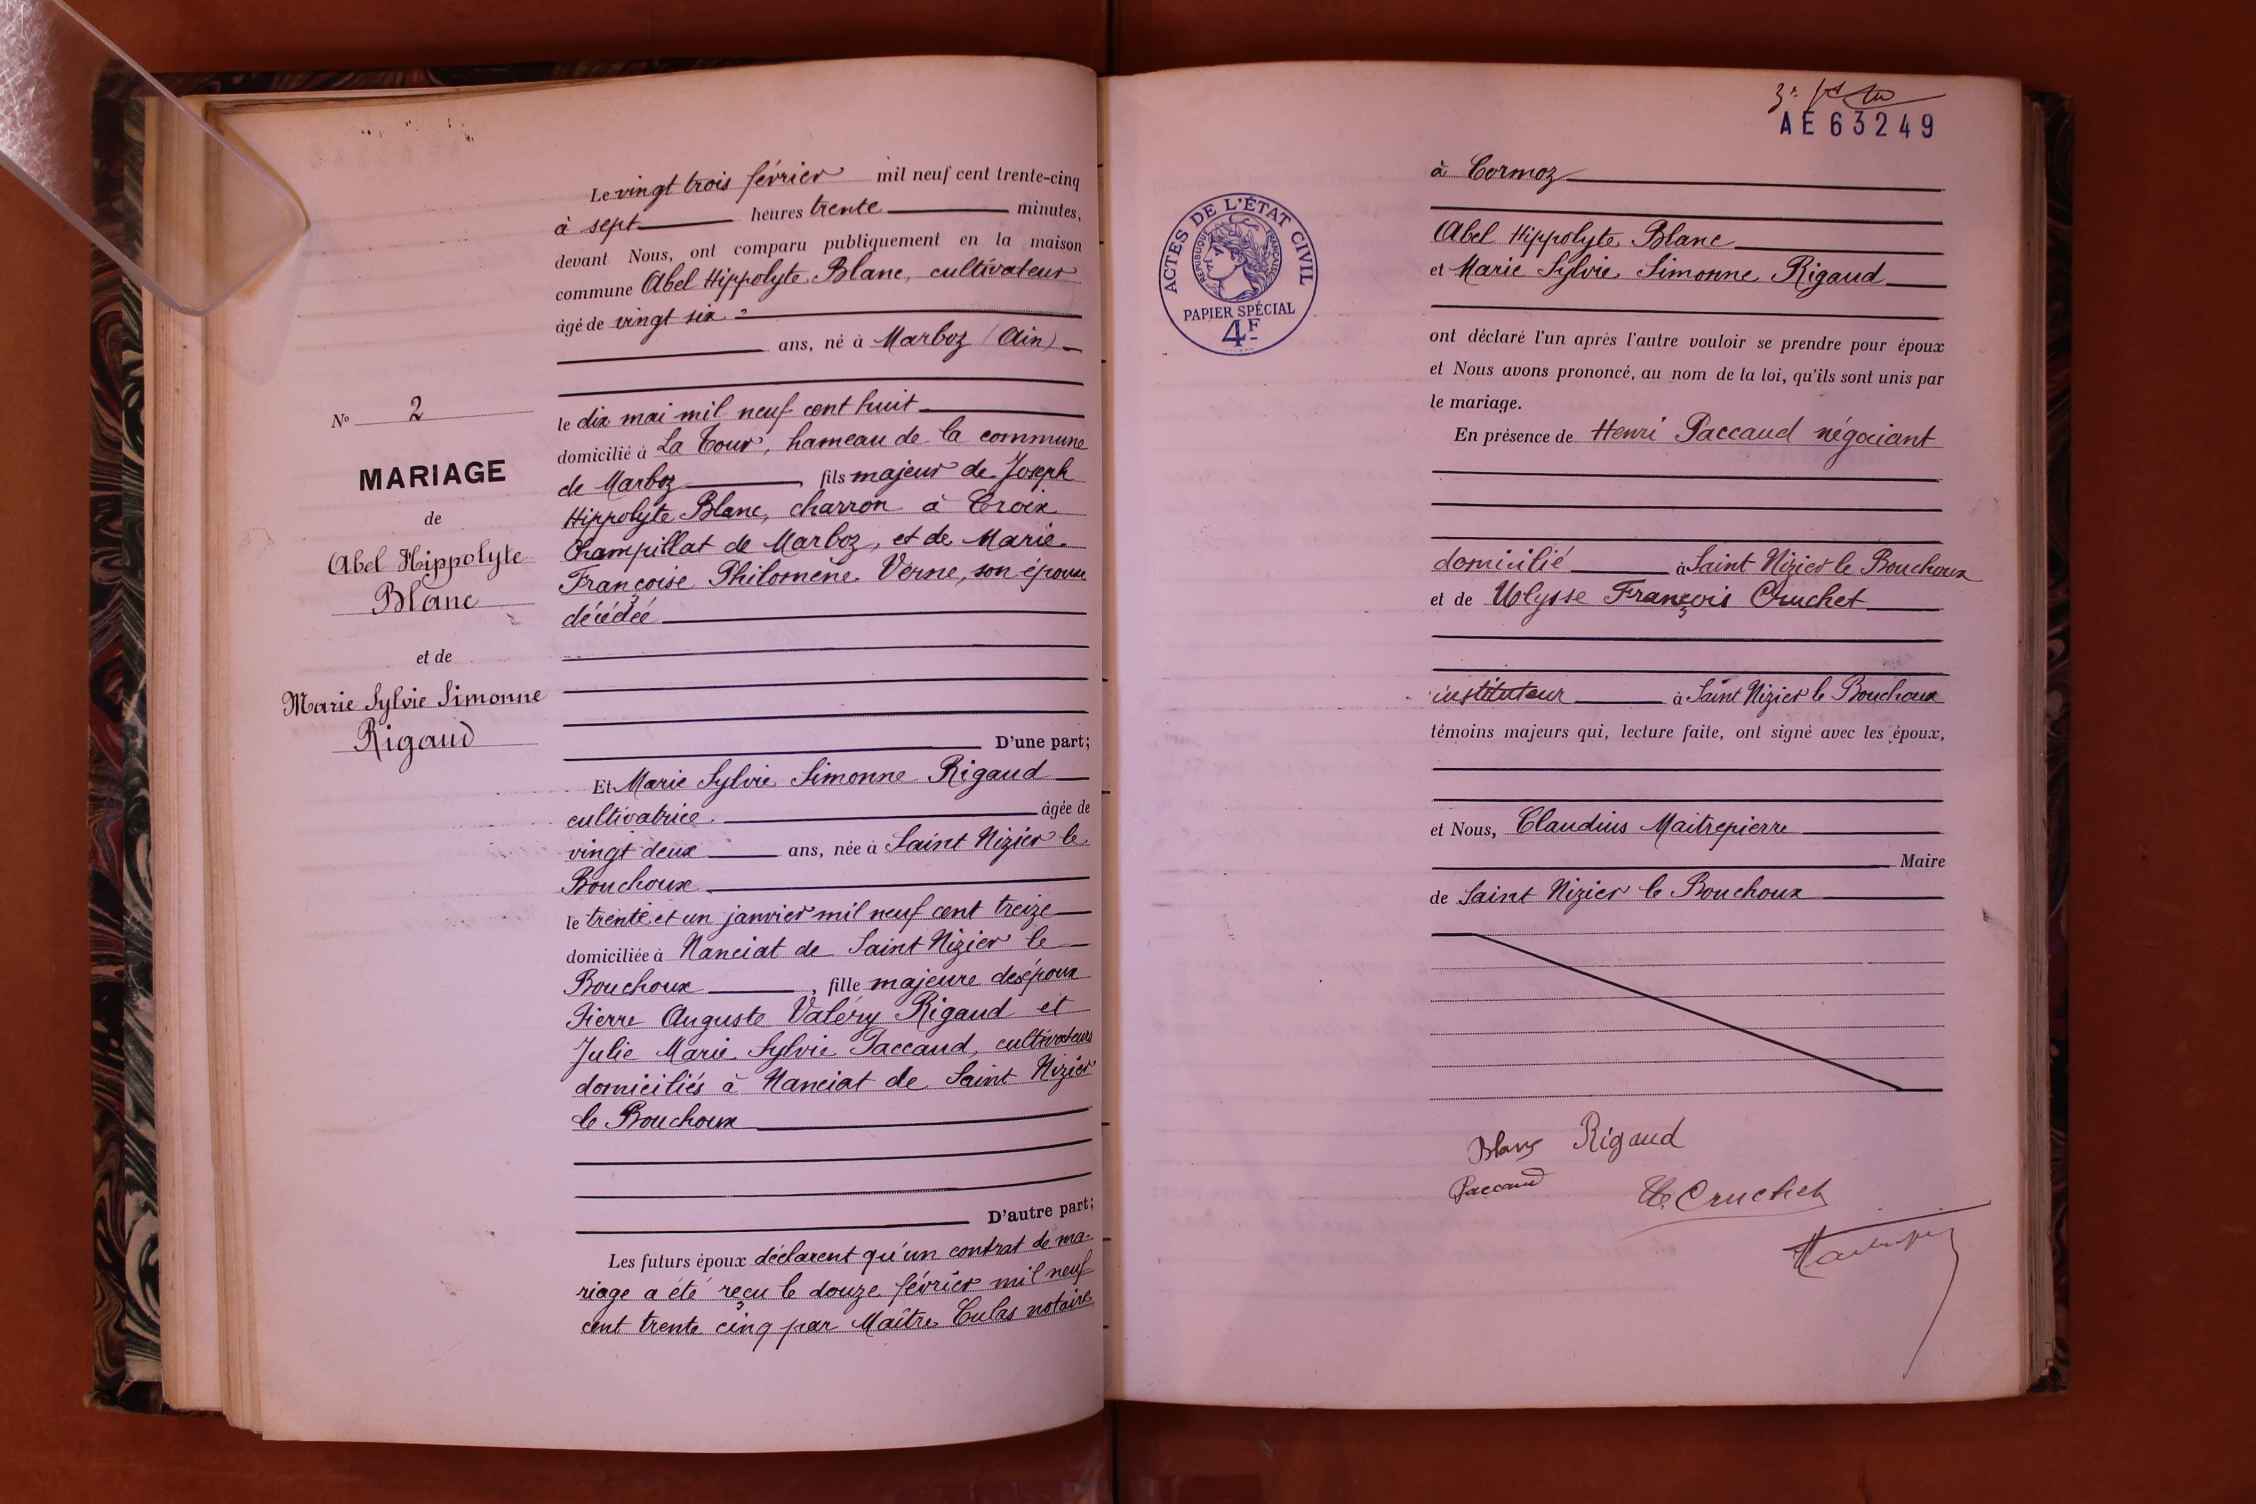 Le vingt trois février mil neuf cent trente-cinq
à sept heures trente minutes,
devant Nous, ont comparu publiquement en la maison
commune Abel Hippolyte Blanc, cultivateur
âgé de vingt six
ans, né à Marboz (Ain)
le dix mai mil neuf cent huit
domicilié à La Tour, hameau de la commune
de Marboz, fils majeur de Joseph
Hippolyte Blanc, charron à Croix
Champillat de Marboz, et de Marie
Françoise Philomène Verne, son épouse
décédée
D'une part;
Et Marie Sylvie Simonne Rigaud
cultivatrice âgée de
vingt deux ans, née à Saint Nizier le
Bouchoux
le trente et un janvier mil neuf cent treize
domiciliée à Nanciat de Saint Nizier le
Bouchoux, fille majeure des époux
Pierre Auguste Valéry Rigaud et
Julie Marie Sylvie Paccaud, cultivateurs
domiciliés à Nanciat de Saint Nizier
le Bouchoux
D'autre part;
Les futurs époux déclarent qu'un contrat de ma-
riage a été reçu le douze février mil neuf
cent trente cinq par Maître Culas notaire
No 2
MARIAGE
de
Abel Hippolyte
Blanc
et de
Marie Sylvie Simonne
Rigaud
AE63249
ACTES DE L'ÉTAT CIVIL
RÉPUBLIQUE FRANÇAISE
PAPIER SPÉCIAL
4F
à Cormoz
Abel Hippolyte Blanc
et Marie Sylvie Simonne Rigaud
ont déclaré l'un après l'autre vouloir se prendre pour époux
et Nous avons prononcé, au nom de la loi, qu'ils sont unis par
le mariage.
En présence de Henri Paccaud négociant
domicilié à Saint Nizier le Bouchoux
et de Ulysse François Cruchet
instituteur à Saint Nizier le Bouchoux
témoins majeurs qui, lecture faite, ont signé avec les époux,
et Nous, Claudius Maitrepierre
Maire
de Saint Nizier le Bouchoux
Blanc Rigaud
Paccaud
U. Cruchet